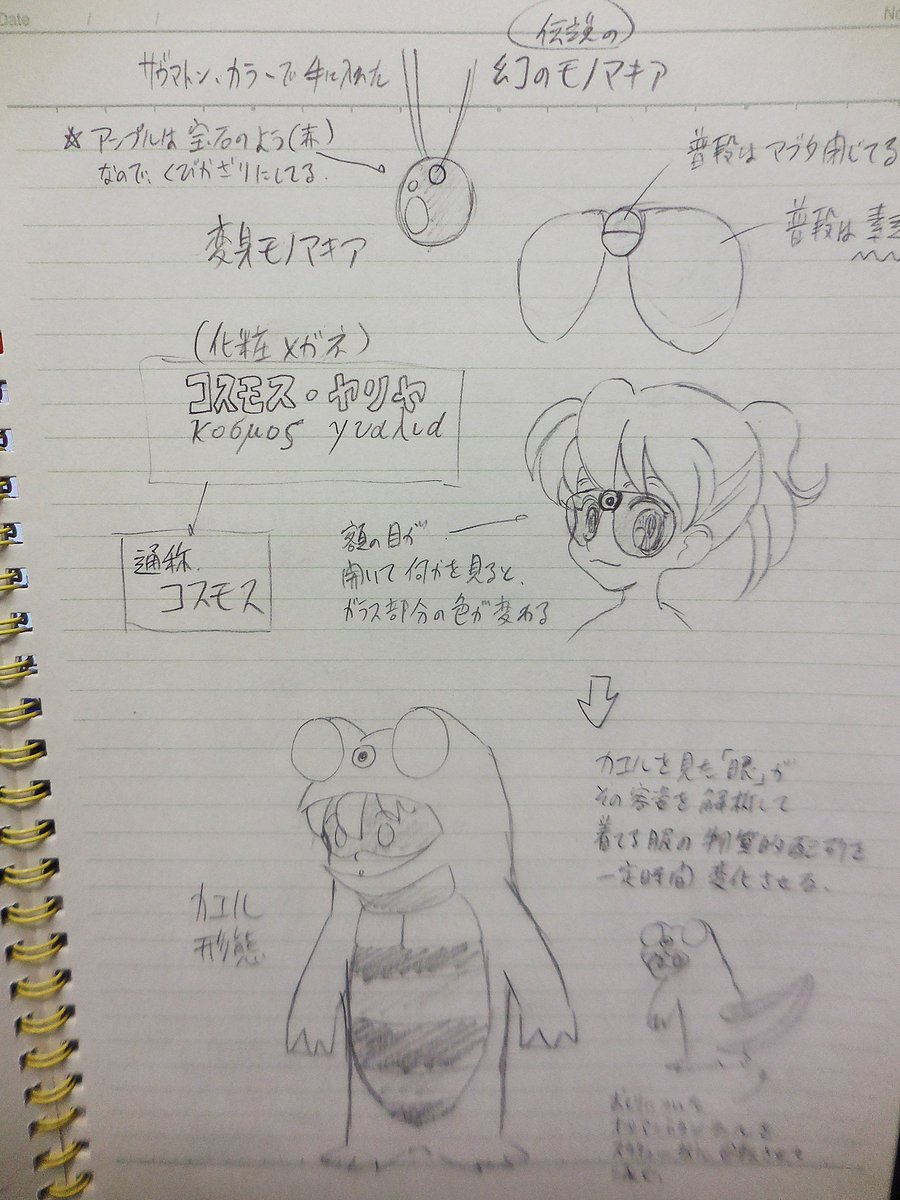 Date / /
No
伝説の
サヴマトン・カラーで手に入れた 幻のモノマキア
☆ アンプルは宝石のよう(赤)
なので、くびかざりにしてる.
普段はマブタ閉じてる
普段は
変身モノマキア
(化粧メガネ)
コスモス・ヤリヤ
κοσμος γυαλια
通称.
コスモス
額の目が
開いて何かを見ると、
ガラス部分の色が変わる
カエルを見た「眼」が
その容姿を解析して
着てる服の物質的配列を
一定時間 変化させる.
カエル
形態